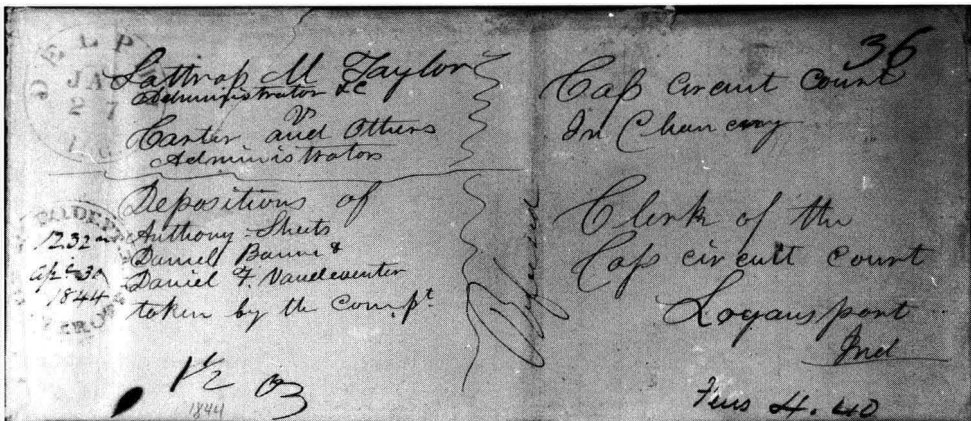 DELP
JA
27
Lattrop M Taylor
Administrator &C
vs
Carter and Others
Administrators
Depositions of
Anthony Sheets
Daniel &
Daniel F. Vandeventer
taken by the Comp.t
1232
Apl 30
1844
1/2
1844
36
Caſs Circuit Court
In Chancery
Clerk of the
Caſs circuit Court
Logansport
Ind
4.40